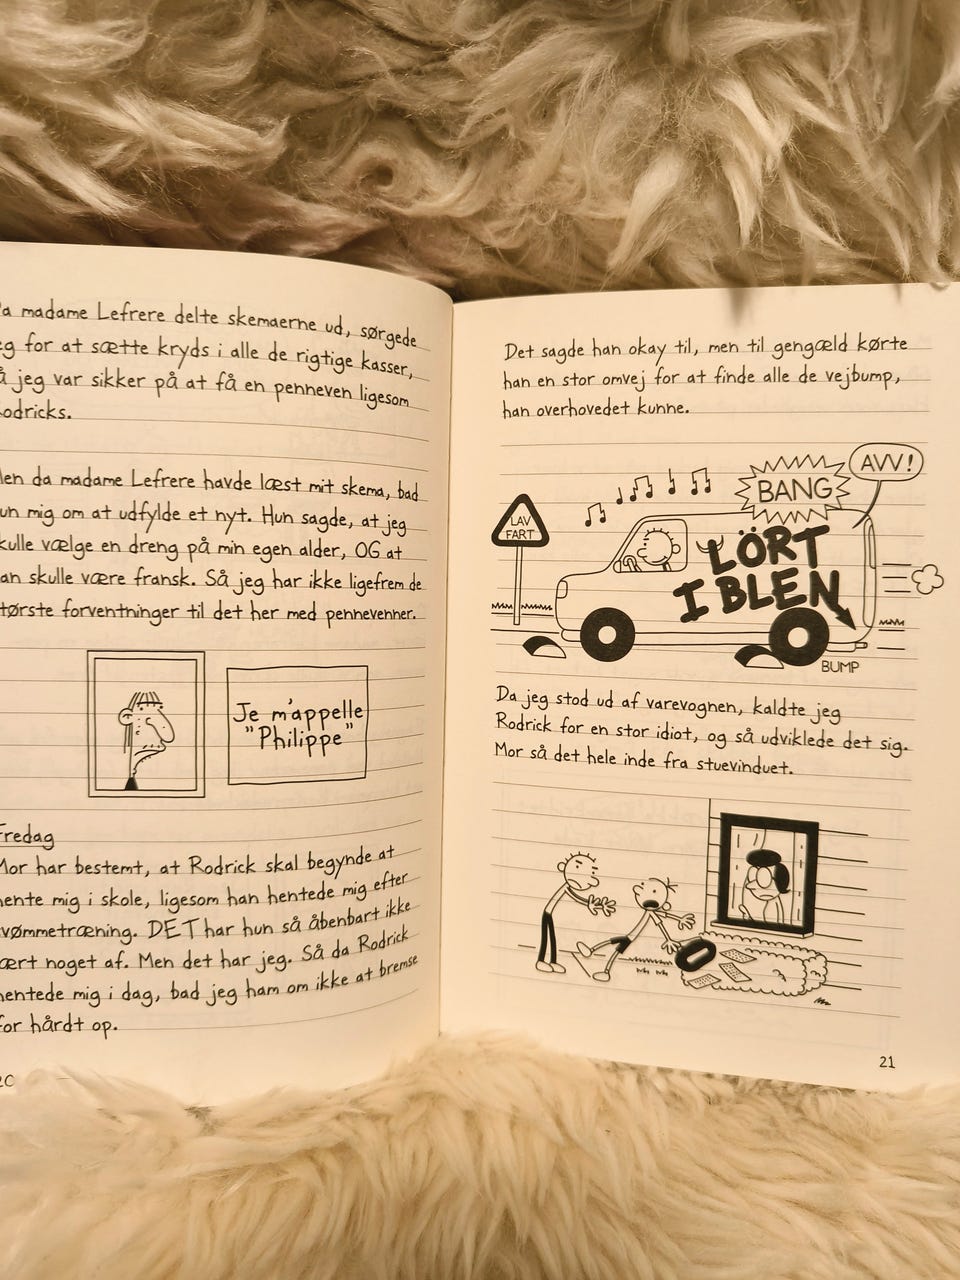 madame Lefrere delte skemaerne ud, sørgede
for at sætte kryds i alle de rigtige kasser,
jeg var sikker på at få en penneven ligesom
da madame Lefrere havde læst mit skema, bad
mig om at udfylde et nyt. Hun sagde, at jeg
vælge en dreng på min egen alder, OG at
skulle være fransk. Så jeg har ikke ligefrem de
forventninger til det her med pennevenner.
Je m'appelle
"Philippe"
Fredag
Mor har bestemt, at Rodrick skal begynde at
mig i skole, ligesom han hentede mig efter
DET har hun så åbenbart ikke
noget af. Men det har jeg. Så da Rodrick
mig i dag, bad jeg ham om ikke at bremse
for hårdt op.
Det sagde han okay til, men til gengæld kørte
han en stor omvej for at finde alle de vejbump,
han overhovedet kunne.
AVV!
BANG
LAV
FART
LÖRT
I BLEN
BUMP
Da jeg stod ud af varevognen, kaldte jeg
Rodrick for en stor idiot, og så udviklede det sig.
Mor så det hele inde fra stuevinduet.
21